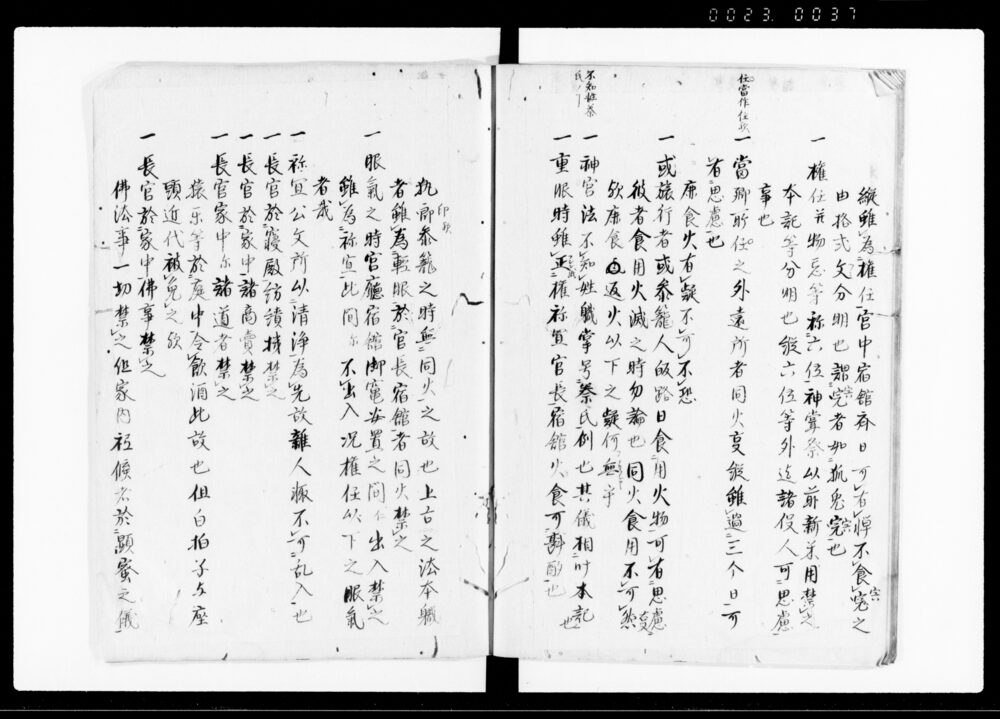 0023. 0037
縦雖為権任官中宿館斎日可有憚不食宍之
由格式文分明也謂宍者如狐兎宍也
一 権任并物忌等祢六位神嘗祭以前新米用禁之
本記等分明也縦六位等外迄諸役人可思慮
事也
任當作住歟
一 當郷所任之外遠所者同火交縦雖過三个日可
有思慮也
廉食火有疑不可不恐
一 或旅行者或参籠人皈路日食用火物可有思慮
彼者食用火滅之時勿論也同火食用不可然
欤廉食返火以下之疑何無乎
不知姓祭
一 神官法不知姓職掌号祭氏例也其儀相叶本記也
一 重服時雖正権祢宜官長宿館火食可斟酌也
執印歟
参籠之時無同火之故也上古之法本職
者雖為軽服於官長宿館者同火禁之
一 服氣之時官廳宿館御竈安置之間出入禁之
雖為祢宜此間不出入况権任以下之服氣
者哉
一 祢宜公文所以清浄為先故雑人輙不可乱入也
一 長官於寝殿紡績抹禁之
一 長官於家中諸商賣禁之
一 長官家中諸道者禁之
猿乐等於庭中令飲酒此故也但白拍子与座
頭近代被免之欤
一 長官於家中佛事禁之
佛法事一切禁之但家内祗候者於顕蜜之儀